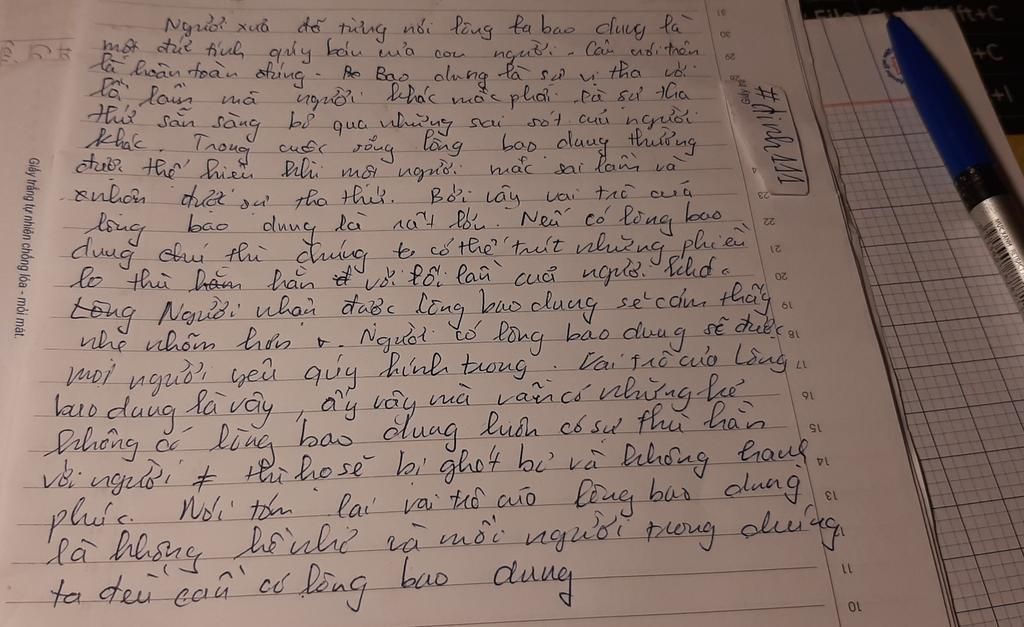 Người xưa đã từng nói lòng ta bao dung là
một đức tính qúy báu của con người. Câu nói trên
là hoàn toàn đúng. Bao dung là sự vị tha với
lỗi lầm mà người khác mắc phải là sự tha
thứ sẵn sàng bỏ qua những sai sót của người
khác. Trong cuộc sống lòng bao dung thường
được thể hiện khi một người mắc sai lầm và
nhận được sự tha thứ. Bởi vậy vai trò của
lòng bao dung là rất lớn. Nếu có lòng bao
dung thì chúng ta có thể trút những phiền
lo thù hằn với lỗi lầm của người khác.
Người nhận được lòng bao dung sẽ cảm thấy
nhẹ nhõm hơn. Người có lòng bao dung sẽ được
mọi người yêu qúy kính trọng. Vai trò của lòng
bao dung là vậy, ấy vậy mà vẫn có những kẻ
không có lòng bao dung luôn có sự thù hằn
với người ≠ thì họ sẽ bị ghét bỏ và không hạnh
phúc. Nói tóm lại vai trò của lòng bao dung
là không hề nhỏ và mỗi người trong chúng
ta đều cần có lòng bao dung
#dinh 111
Giấy trắng tự nhiên chống lóa - mỏi mắt.
31
30
29
23
22
21
20
19
18
17
16
15
14
13
11
10
Shift+C
+C